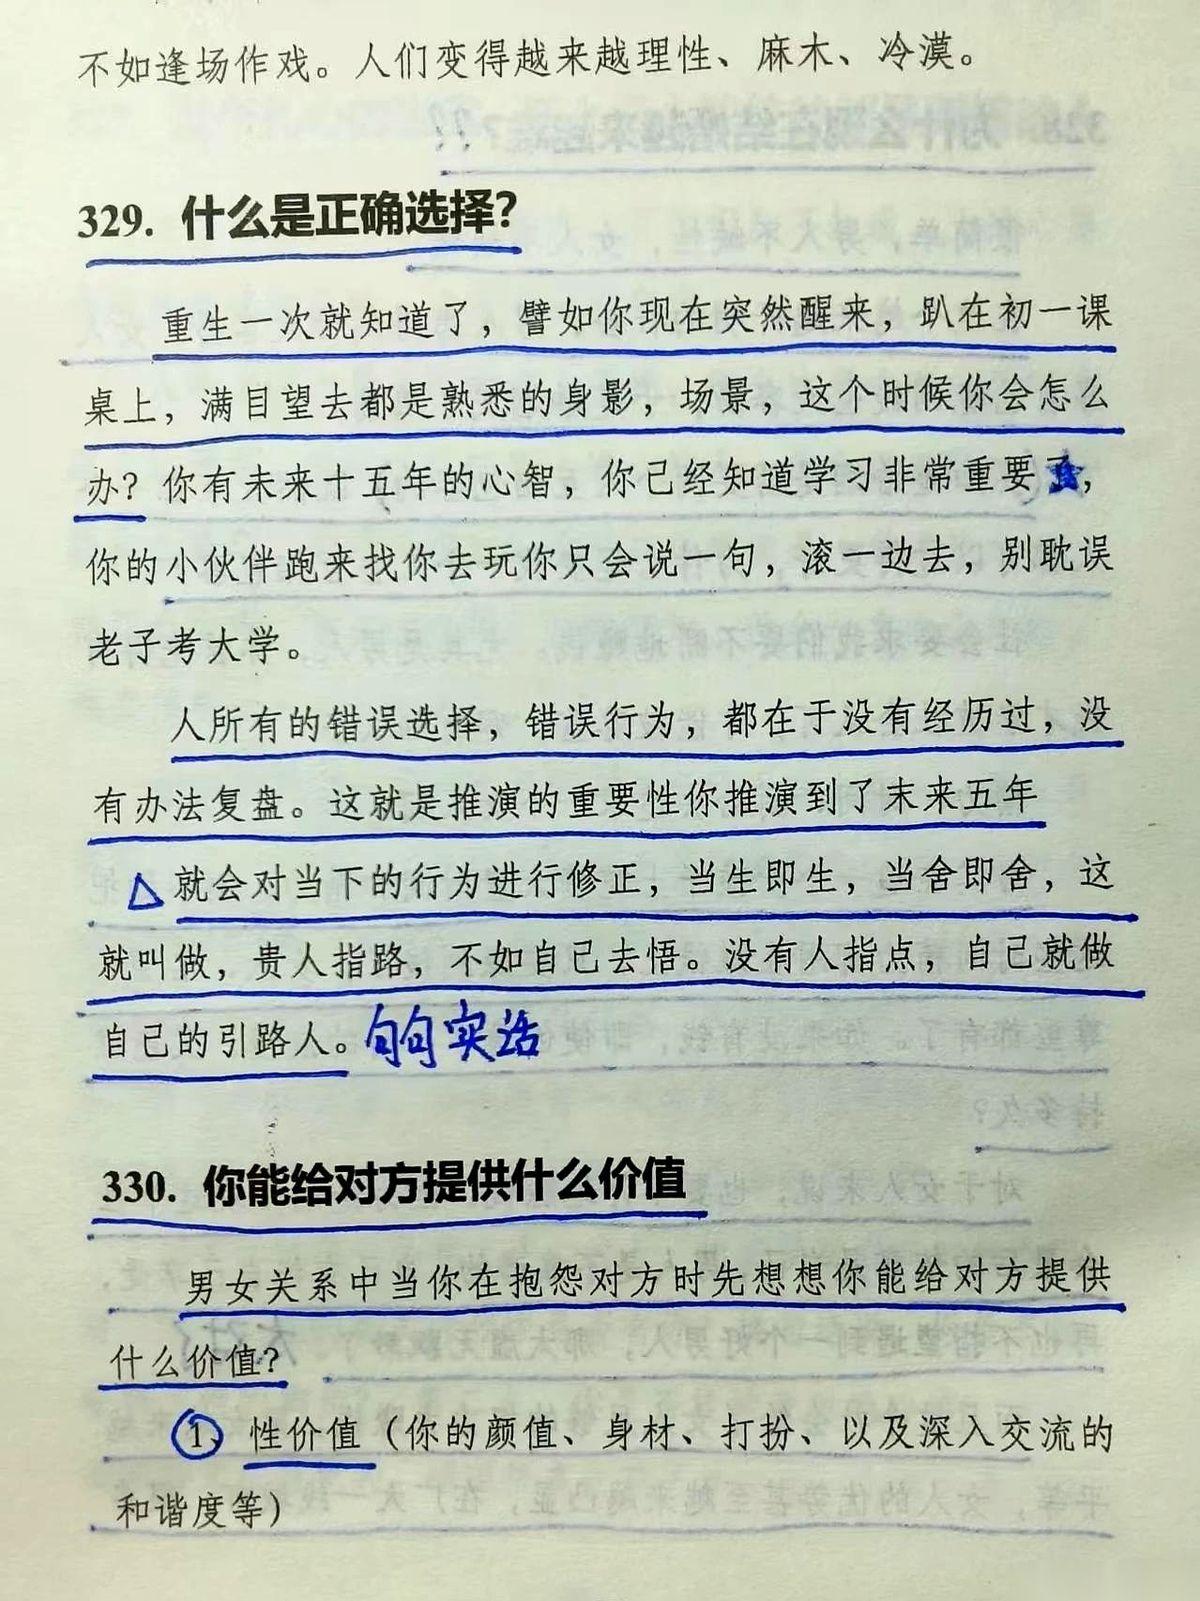 不如逢场作戏。人们变得越来越理性、麻木、冷漠。
329. 什么是正确选择？
重生一次就知道了，譬如你现在突然醒来，趴在初一课
桌上，满目望去都是熟悉的身影，场景，这个时候你会怎么
办？你有未来十五年的心智，你已经知道学习非常重要了，
你的小伙伴跑来找你去玩你只会说一句，滚一边去，别耽误
老子考大学。
人所有的错误选择，错误行为，都在于没有经历过，没
有办法复盘。这就是推演的重要性你推演到了末来五年
就会对当下的行为进行修正，当生即生，当舍即舍，这
就叫做，贵人指路，不如自己去悟。没有人指点，自己就做
自己的引路人。句句实话
330. 你能给对方提供什么价值
男女关系中当你在抱怨对方时先想想你能给对方提供
什么价值？
1、性价值（你的颜值、身材、打扮、以及深入交流的
和谐度等）